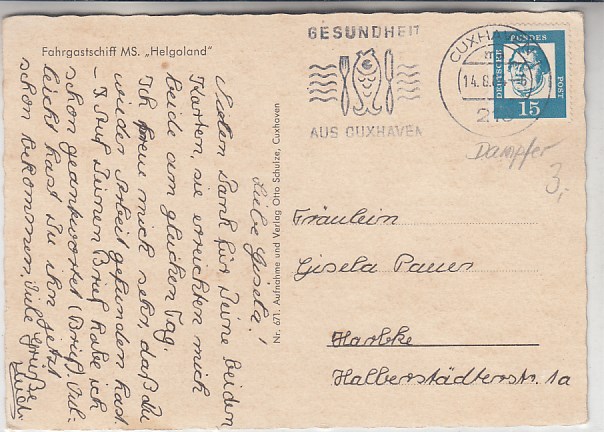 Fahrgastschiff MS. „Helgoland"
GESUNDHEIT
AUS CUXHAVEN
CUXHAVEN
14.8.
DEUTSCHE BUNDES POST
15
Dampfer
3,-
Nr. 671. Aufnahme und Verlag Otto Schulze, Cuxhaven
Liebe Gisela!
Vielen Dank für Deine beiden
Karten, sie erreichten mich
beide am gleichen Tag.
Ich freue mich sehr, daß Du
wieder Arbeit gefunden hast
Auf Deinen Brief habe ich
schon geantwortet (Brief). Viel-
leicht hast Du ihn jetzt
schon bekommen. Viele Grüße
Fräulein
Gisela Pauer
Harbke
Halberstädterstr. 1a